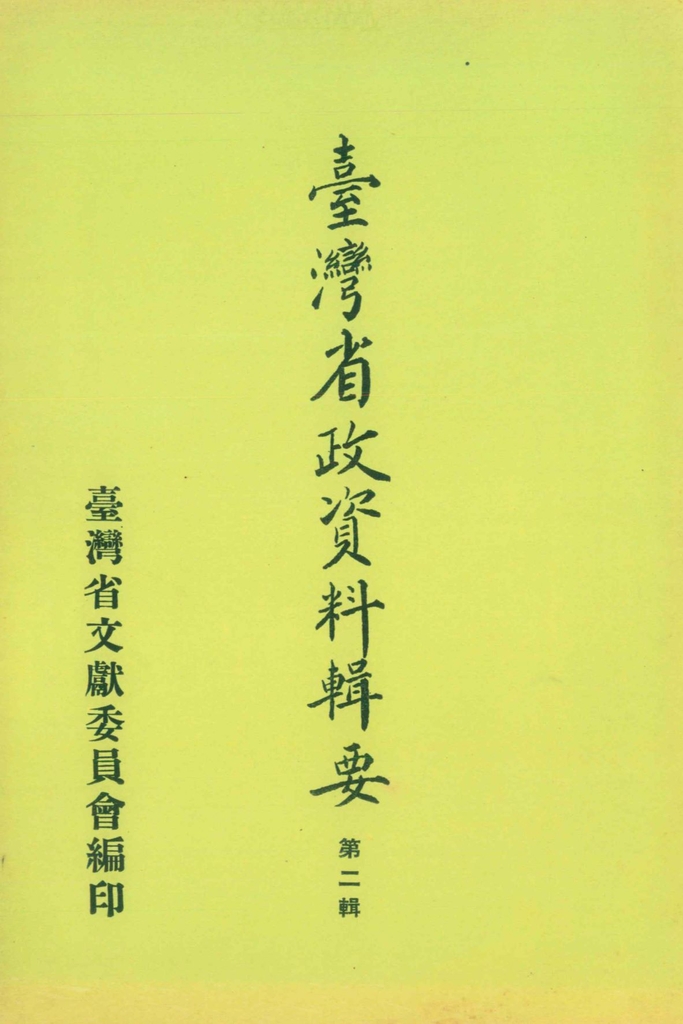 臺灣省政資料輯要
第二輯
臺灣省文獻委員會編印